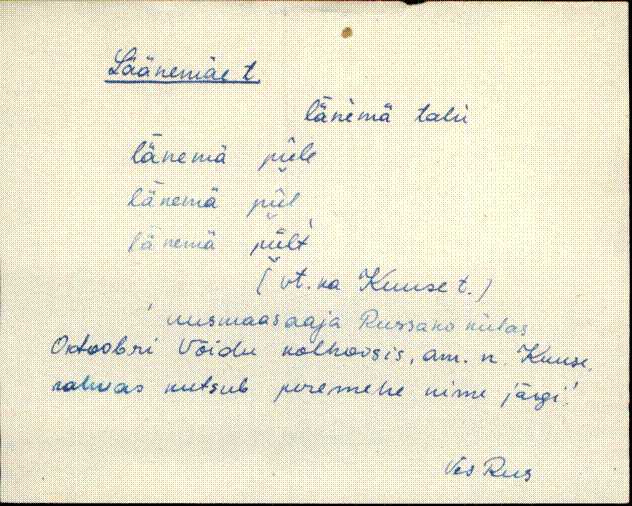 Läänemäe t.
länemä talu
länemä püle
länemä pül
länemä pült
(vt. ka Kuuse t.)
uusmaasaaja Russako kutas
Oktoobri Võidu kolhoosis, am. n. Kuuse.
rahvas kutsub peremehe nime järgi!
Ves Rus